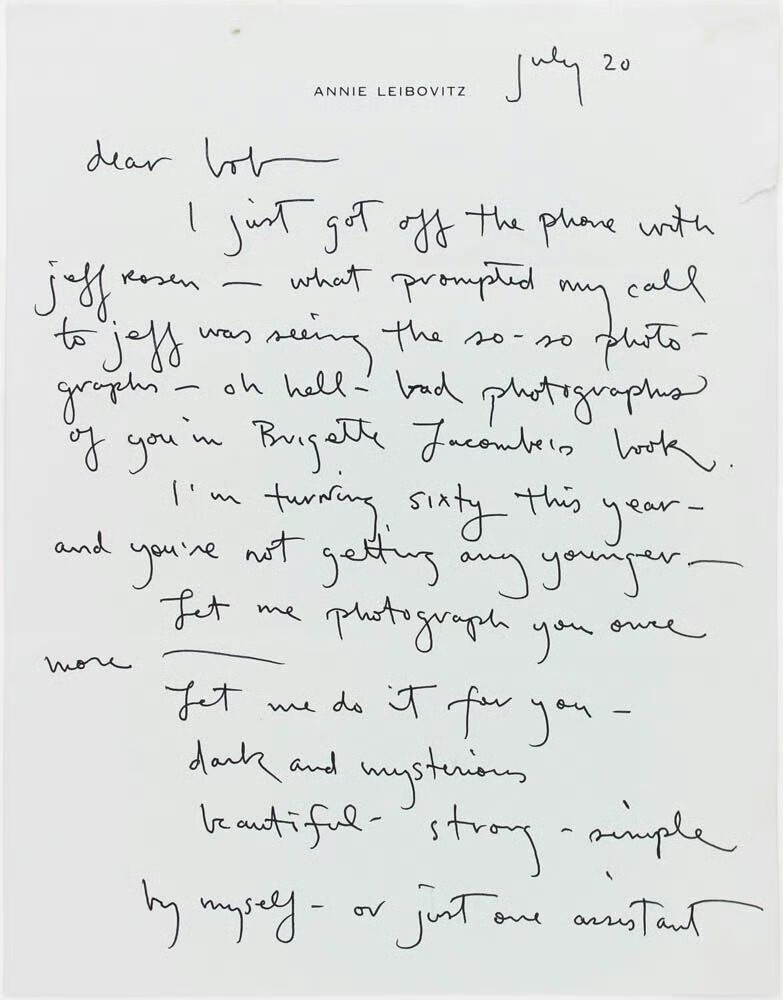 july 20
ANNIE LEIBOVITZ
dear bob —
I just got off the phone with
jeff rosen — what prompted my call
to jeff was seeing the so-so photo-
graphs — oh hell - bad photographs
of you in Brigette Lacombe's book.
I'm turning sixty this year -
and you're not getting any younger. —
Let me photograph you once
more —
Let me do it for you -
dark and mysterious
beautiful - strong - simple
by myself - or just one assistant